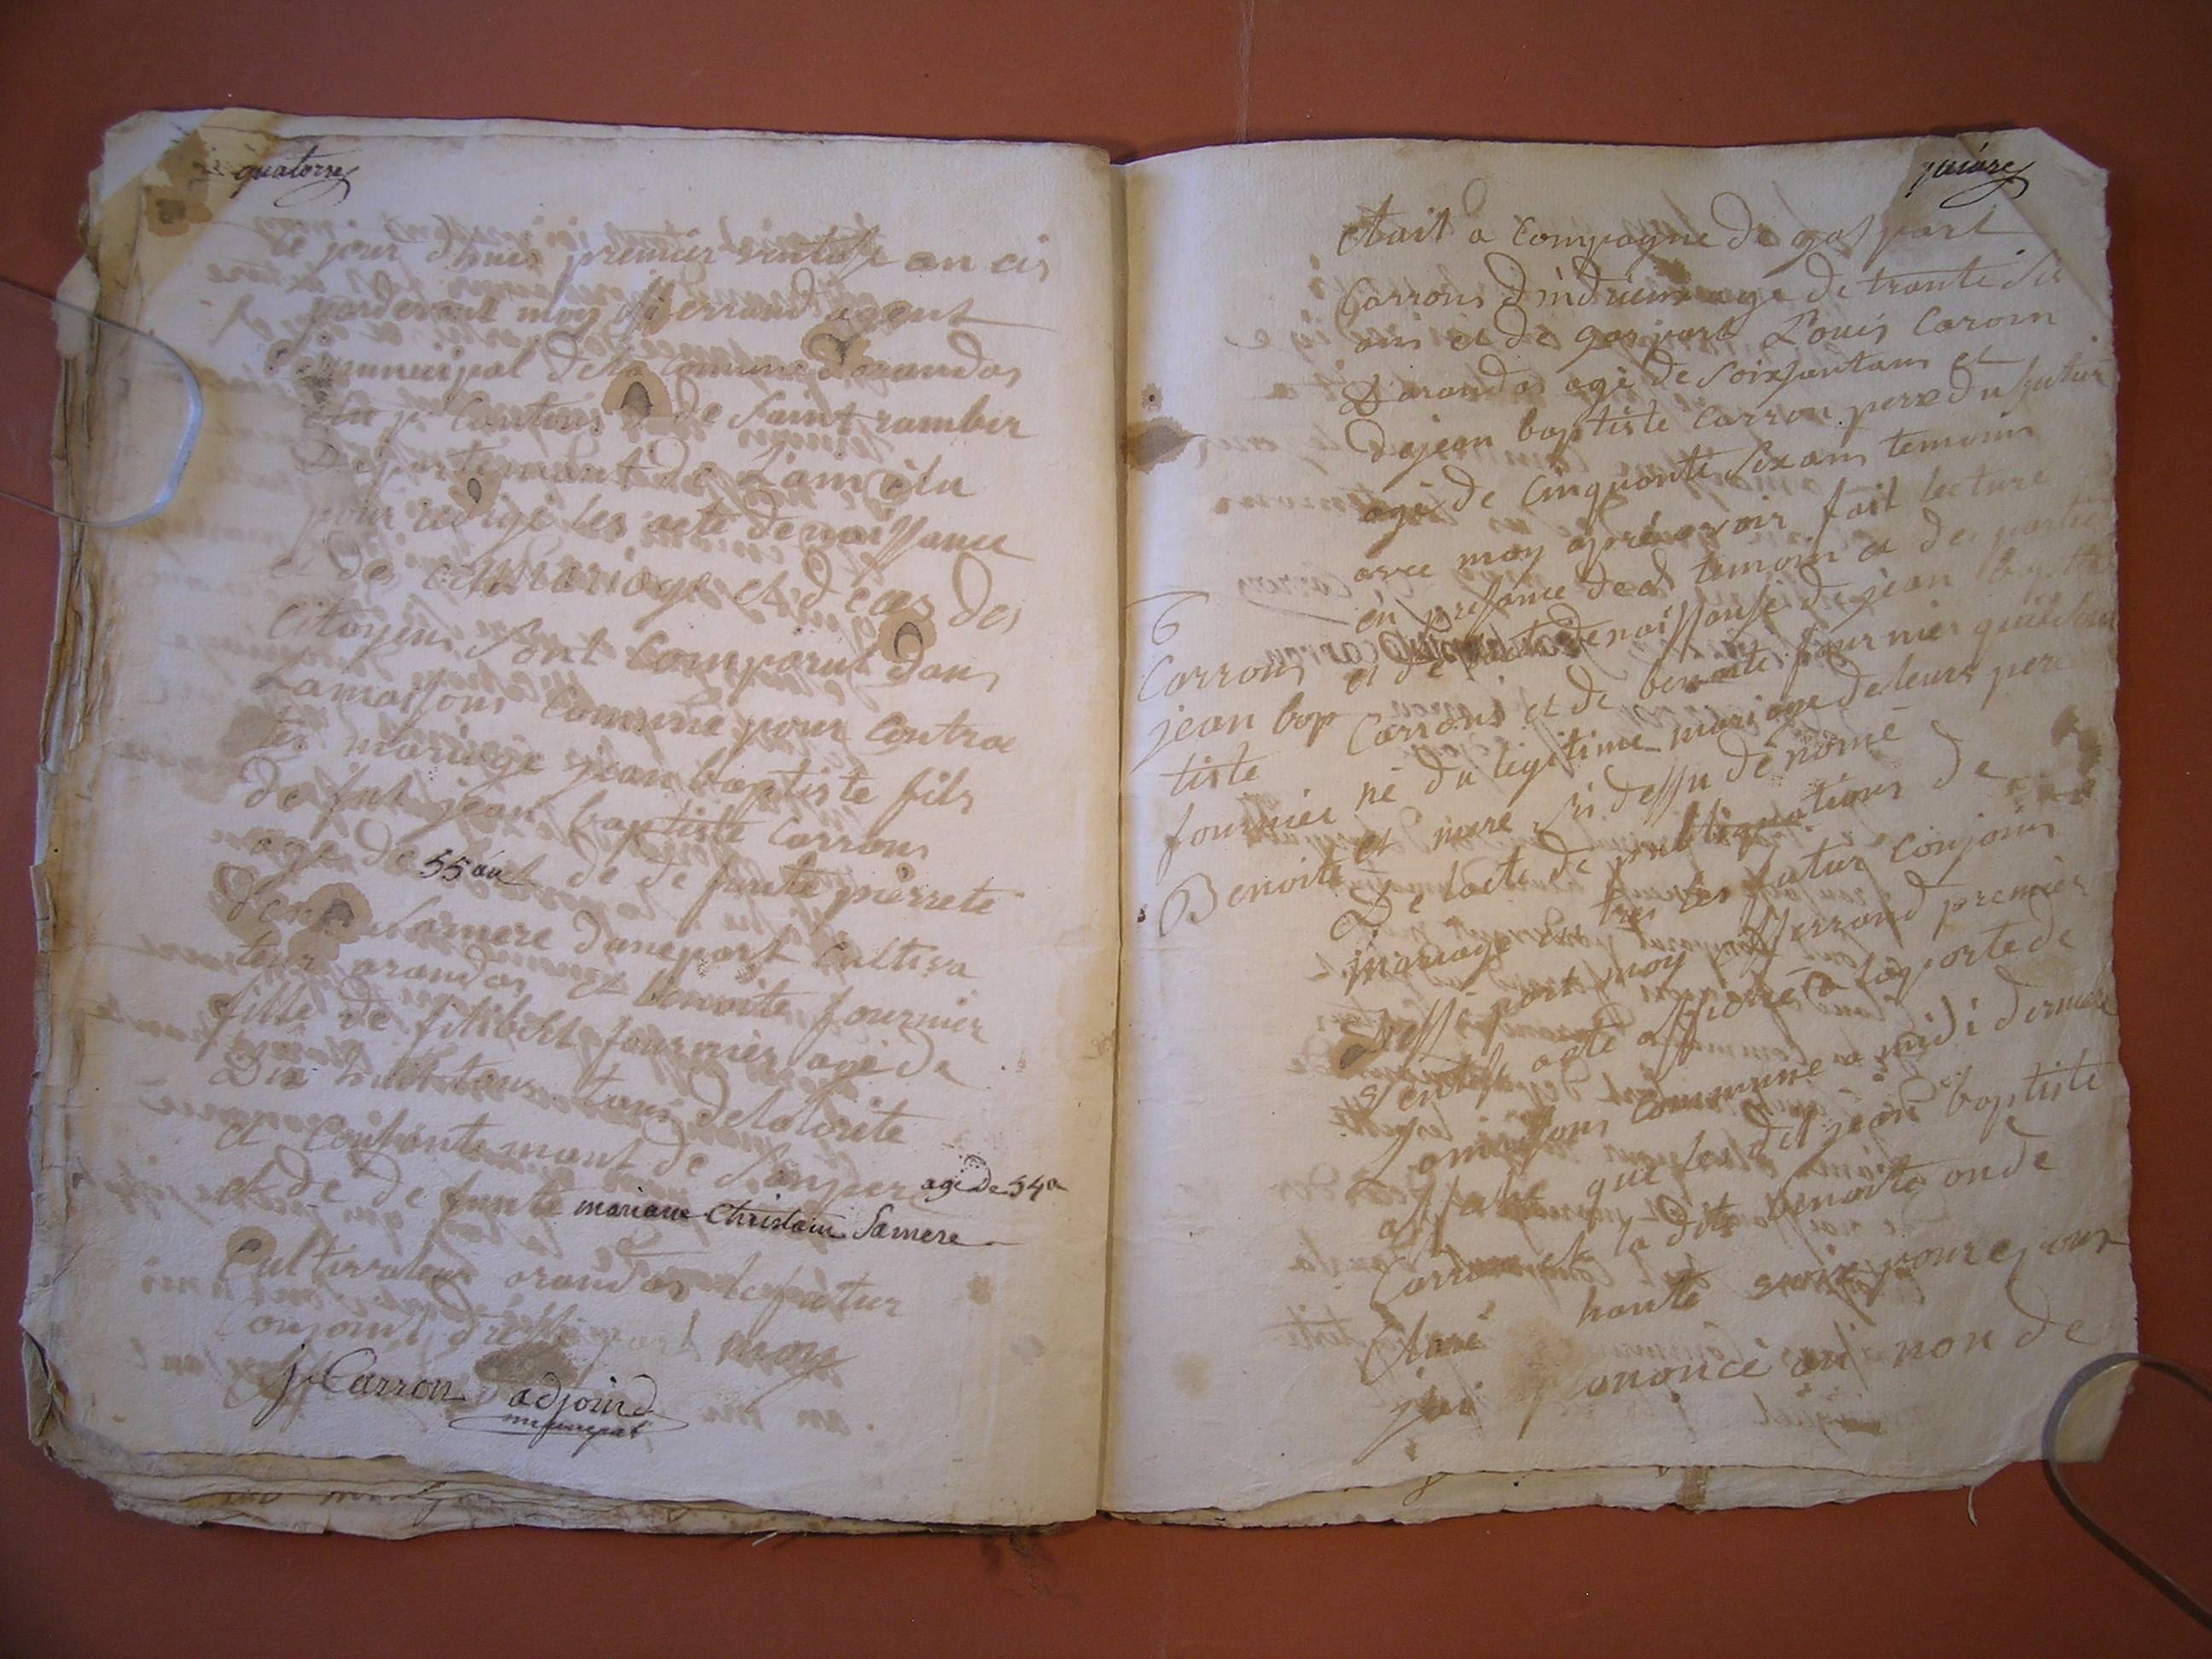 quatorze
ce jour dhuis premier ventosse an cis
pardevant moy ferrand agent
municipal de la Comune darandas
Cantons de Saint ramber
Departemant de Lain elu
pour rédigé les acte de naissance
et de mariage et déces des
Citoyens Sont Comparut dans
Lamaisons Comune pour Contrac
ter mariage jean baptiste fils
de fut jean baptiste Carrons
age de 55 an et de de funte pierrete
Samere dunepart Cultiva
teur arandas et benoite fournier
fille de filibert fournier agé de
Dix huit tous tans delatorite
et Consantemant de Sonpere agé de 54 an
et de de funte mariane Christain Samere
Cultivateur arandas le futur
Conjoint part moy
j Carron adjoind
municipal
quinze
Etait a Compagne de gaspart
Carrons dindrieu age de trante sis
ans et de gaspart Louis Caron
Darandas agé de soixsantans et
dejean baptiste Carron pere du futur
agé de Cinquante Six ans temoins
avec moy apré avoir fait lecture
en presance de d temoin et de partie
et de lacte de naissanse de jean baptiste
Carrons et de benoite fournier
né du légitime mariage de leurs pere
et mere si dessu dénomé
De lacte de publiquations de
mariage entre les futur Conjoins
Dressé part moy ferrand premier
ventosse acte affiché a la porte de
Lamaisons Commune a midi
affaire que les dit jean baptiste
Carron et la dite benoite on de
Claré haute voix pour epoux
jai prononcé au non de
6
Carrons
jean bap
tiste
fournier
Benoite